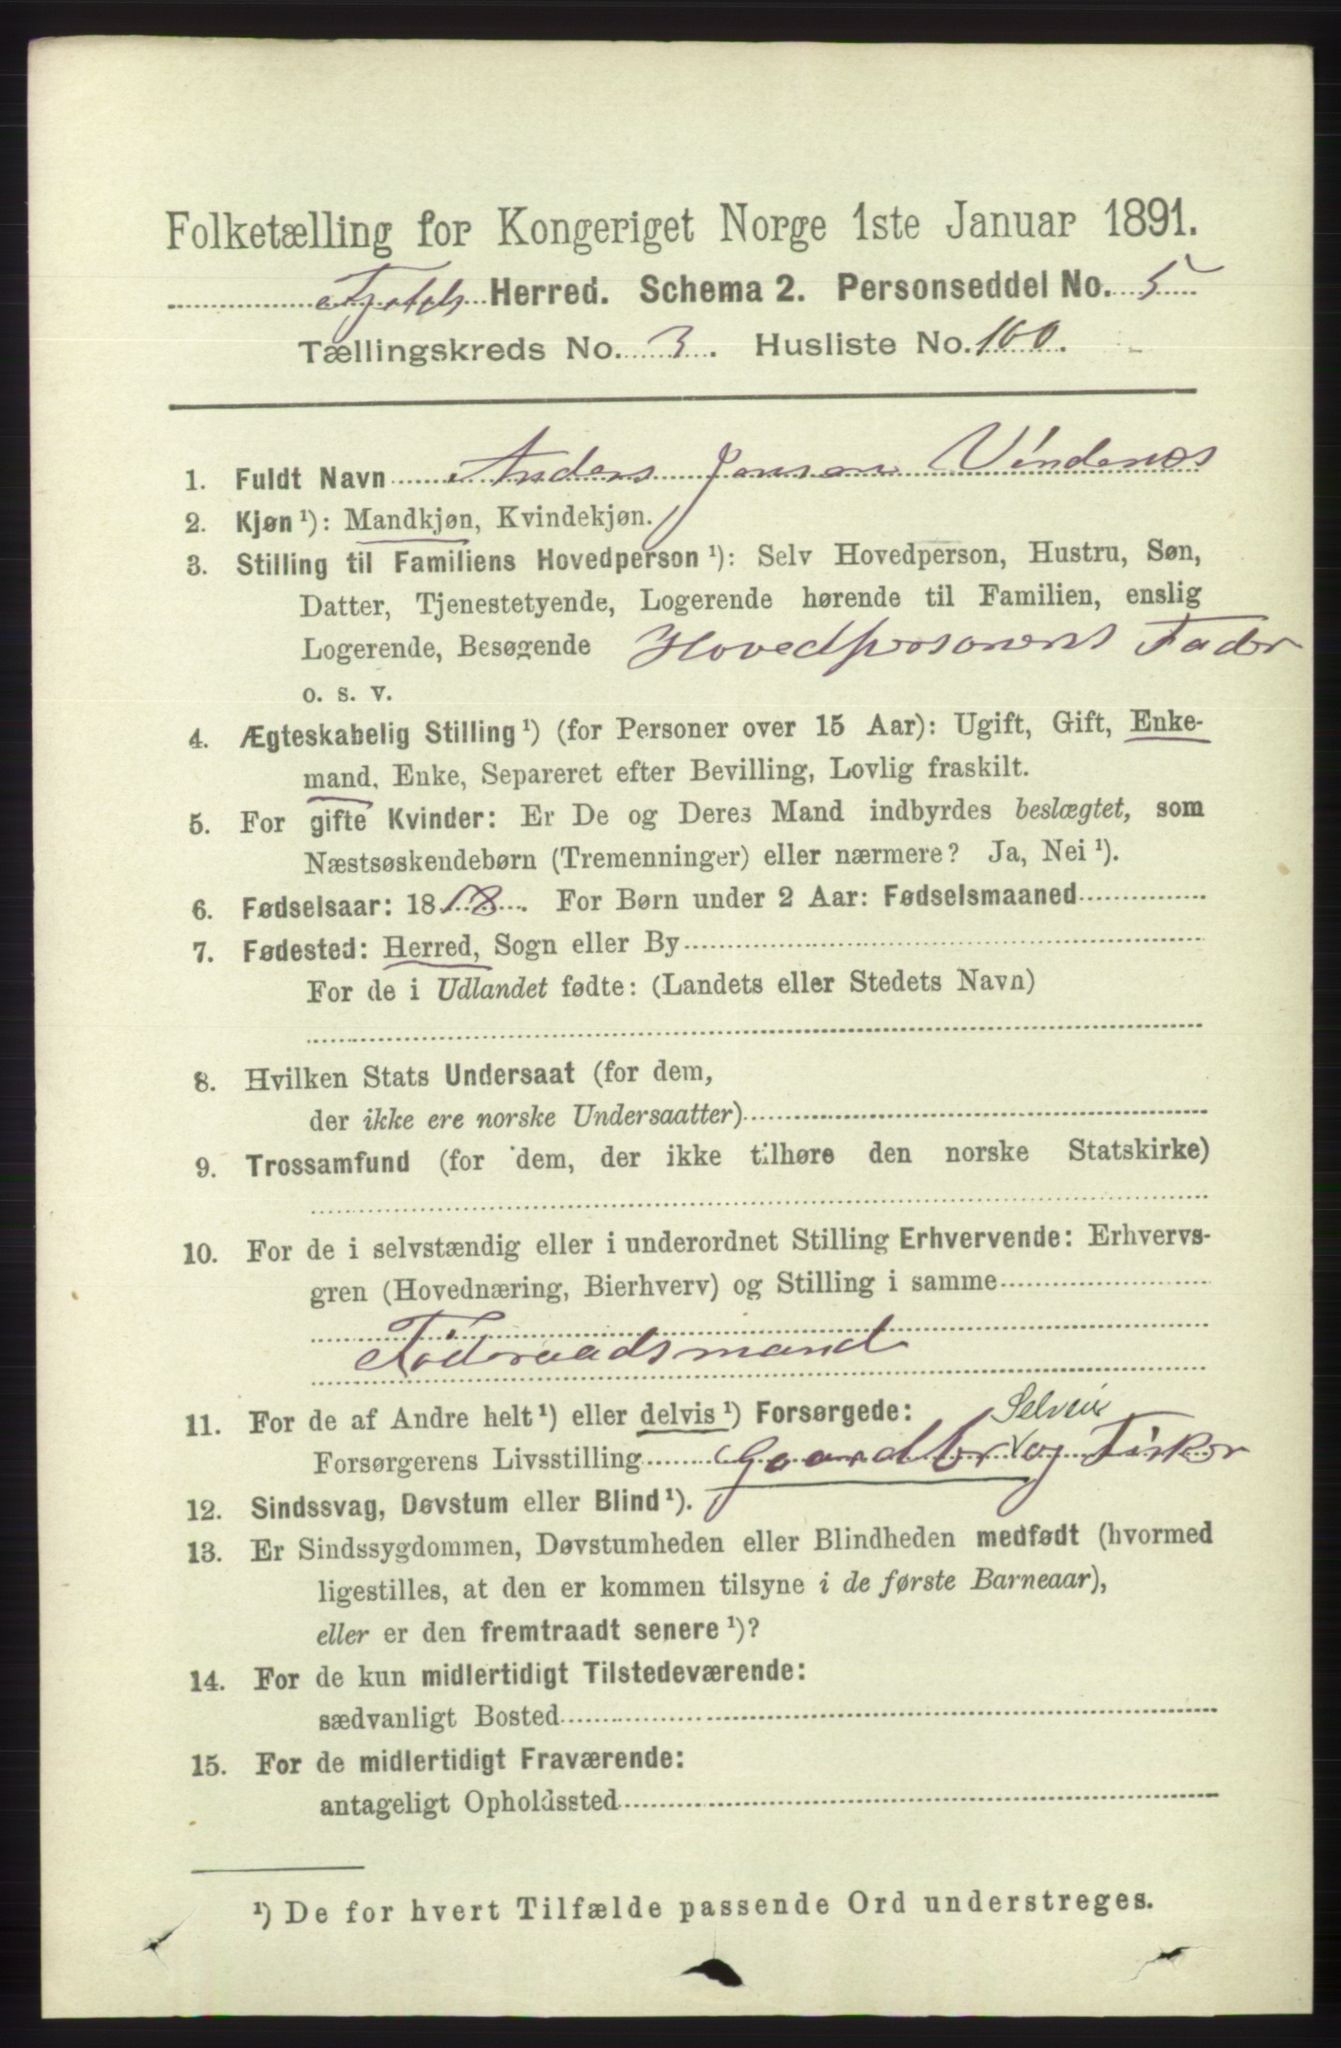 Folketælling for Kongeriget Norge 1ste Januar 1891.
Fjeld Herred. Schema 2. Personseddel No. 5
Tællingskreds No. 3. Husliste No. 100.
1. Fuldt Navn Anders Jonsen Vindenes
2. Kjøn ¹): Mandkjøn, Kvindekjøn.
3. Stilling til Familiens Hovedperson ¹): Selv Hovedperson, Hustru, Søn,
Datter, Tjenestetyende, Logerende hørende til Familien, enslig
Logerende, Besøgende Hovedpersonens Fader
o. s. v.
4. Ægteskabelig Stilling ¹) (for Personer over 15 Aar): Ugift, Gift, Enke-
mand, Enke, Separeret efter Bevilling, Lovlig fraskilt.
5. For gifte Kvinder: Er De og Deres Mand indbyrdes beslægtet, som
Næstsøskendebørn (Tremenninger) eller nærmere? Ja, Nei ¹).
6. Fødselsaar: 1818. For Børn under 2 Aar: Fødselsmaaned
7. Fødested: Herred, Sogn eller By
For de i Udlandet fødte: (Landets eller Stedets Navn)
8. Hvilken Stats Undersaat (for dem,
der ikke ere norske Undersaatter)
9. Trossamfund (for dem, der ikke tilhøre den norske Statskirke)
10. For de i selvstændig eller i underordnet Stilling Erhvervende: Erhvervs-
gren (Hovednæring, Bierhverv) og Stilling i samme
Föderaadsmand
11. For de af Andre helt ¹) eller delvis ¹) Forsørgede: Selveie
Forsørgerens Livsstilling Gaardbr og Fisker
12. Sindssvag, Døvstum eller Blind ¹).
13. Er Sindssygdommen, Døvstumheden eller Blindheden medfødt (hvormed
ligestilles, at den er kommen tilsyne i de første Barneaar),
eller er den fremtraadt senere ¹)?
14. For de kun midlertidigt Tilstedeværende:
sædvanligt Bosted
15. For de midlertidigt Fraværende:
antageligt Opholdssted
¹) De for hvert Tilfælde passende Ord understreges.